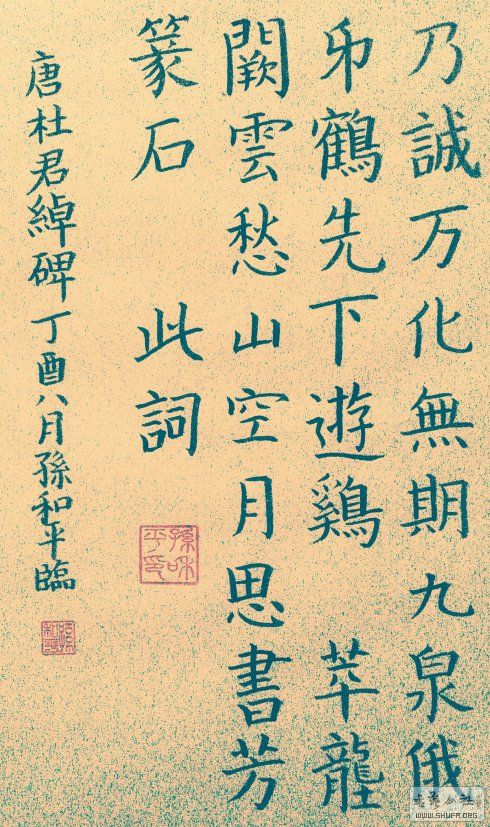 乃誠万化無期九泉俄
弔鶴先下遊鷄 萃龍
闕雲愁山空月思書芳
篆石 此詞
孫和平印
唐杜君綽碑丁酉八月孫和平臨
WWW.SHUFA.ORG